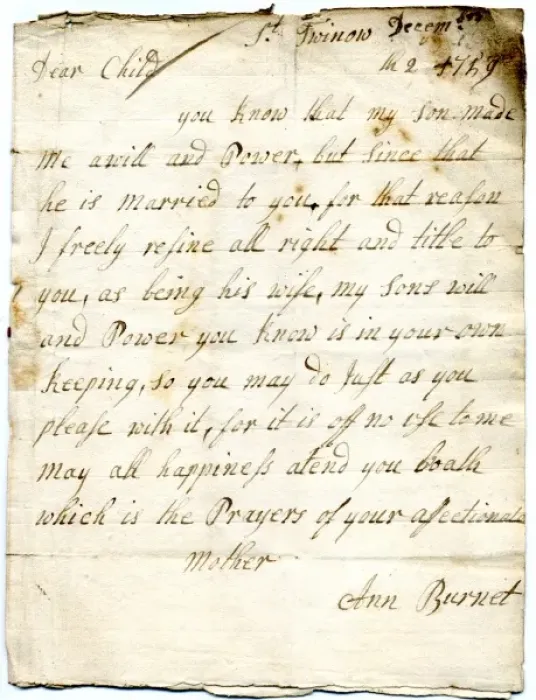 St Twinow Decemb
Dear Child the 2 1759
you know that my son made
me a will and Power, but since that
he is married to you, for that reason
I freely resine all right and title to
you, as being his wife, my sons will
and Power you know is in your own
keeping, so you may do Just as you
please with it, for it is off no use to me
may all happiness atend you boath
which is the Prayers of your afectionate
Mother
Ann Burnet